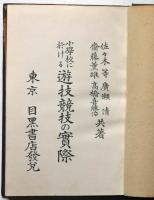 佐々木等 廣瀬清
齋藤薫雄 高橋喜藤治 共著
小學校に於ける
遊技競技の實際
東京 目黒書店發兌